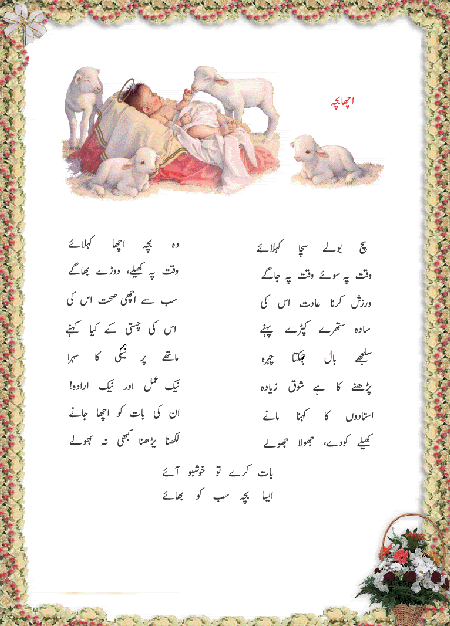 اچھا بچہ
سچ بولے سچا کہلائے وہ بچہ اچھا کہلائے
وقت پہ سوئے وقت پہ جاگے وقت پہ کھیلے، دوڑے بھاگے
ورزش کرنا عادت اس کی سب سے اچھی صحت اس کی
سادہ ستھرے کپڑے پہنے اس کی چستی کے کیا کہنے
سلجھے بال چمکتا چہرہ ماتھے پر نیکی کا سہرا
پڑھنے کا ہے شوق زیادہ نیک عمل اور نیک ارادہ!
استادوں کا کہنا مانے ان کی بات کو اچھا جانے
کھیلے کودے، جھولا جھولے لکھنا پڑھنا کبھی نہ بھولے
بات کرے تو خوشبو آئے
ایسا بچہ سب کو بھائے